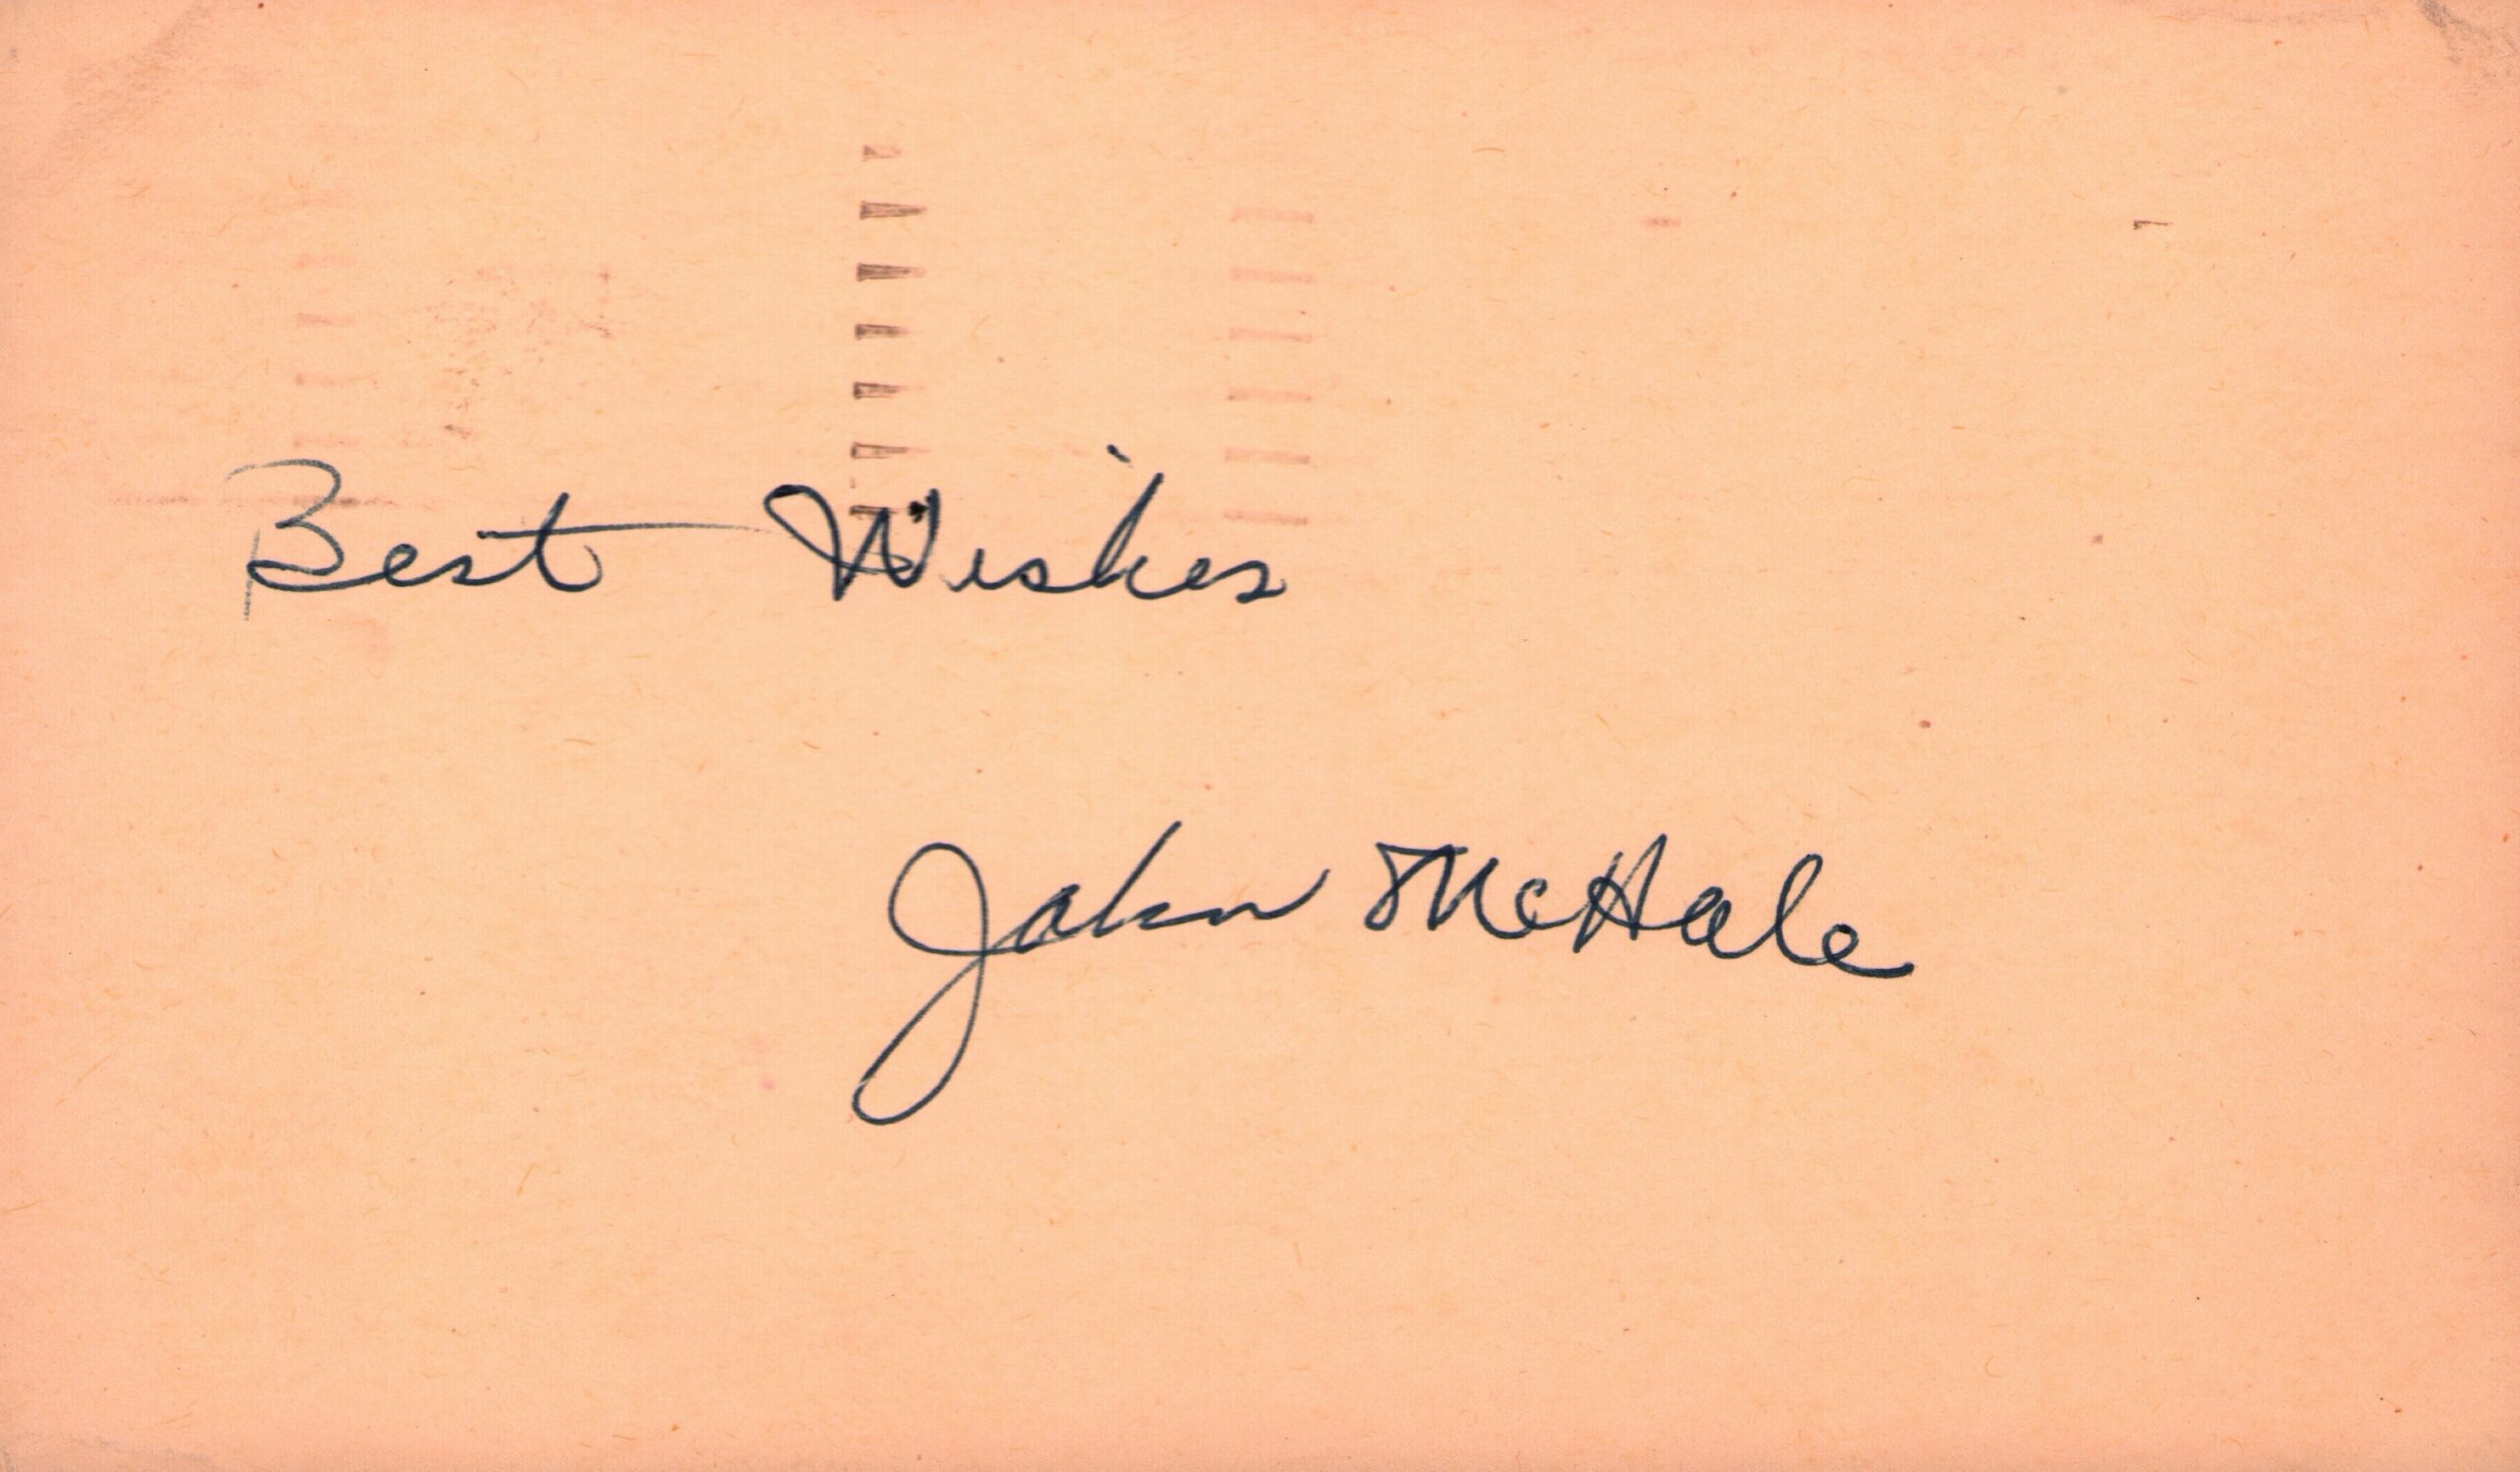 Best Wishes
John McHale